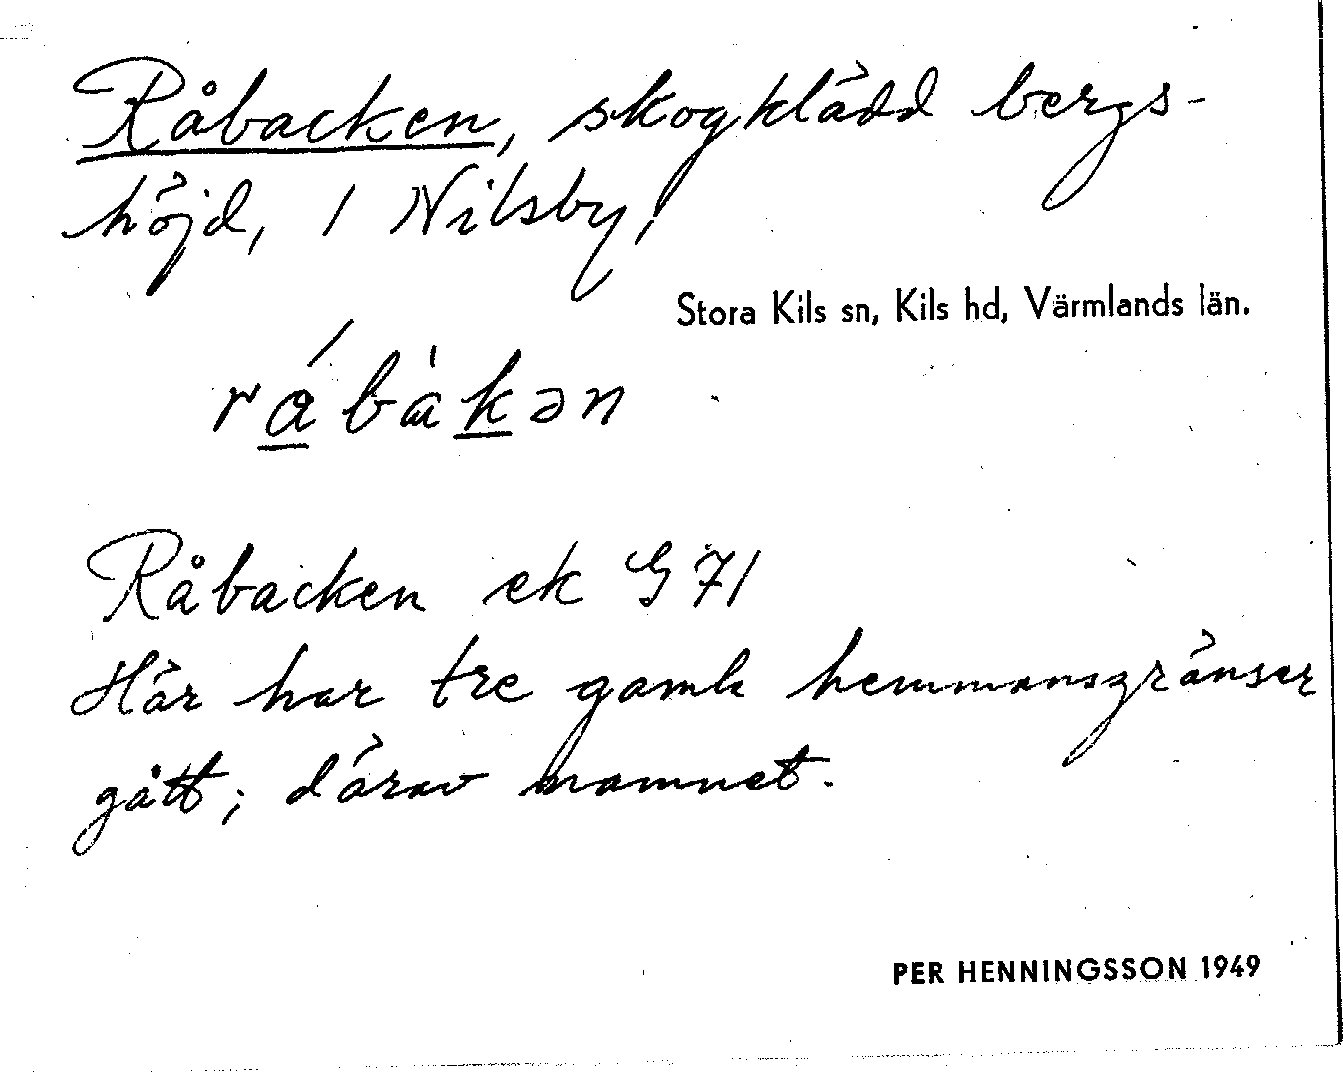 Råbacken, skogklädd bergs-
höjd, 1 Nilsby,
Stora Kils sn, Kils hd, Värmlands län.
rá̱bàḵən
Råbacken ek G 71
Här har tre gamla hemmansgränser
gått; därav namnet.
PER HENNINGSSON 1949